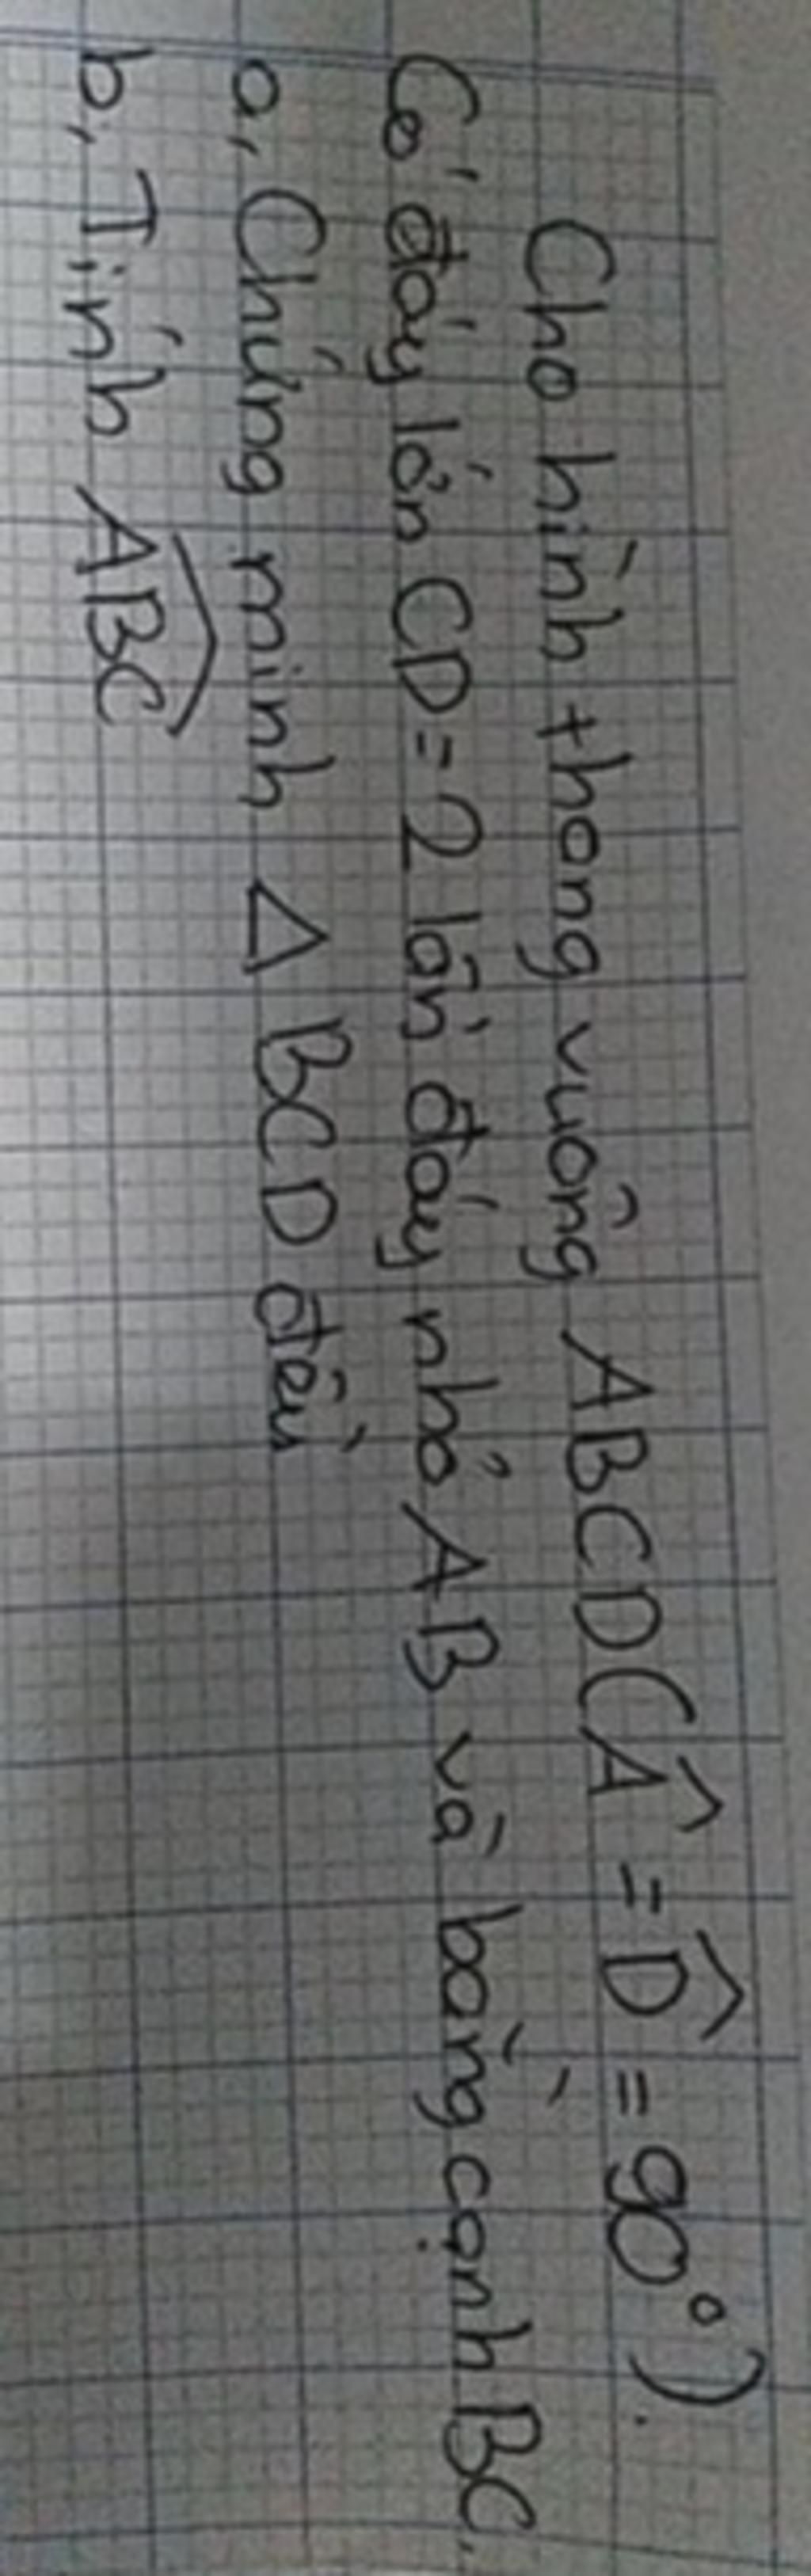 Cho hình thang vuông ABCD (Â = D̂ = 90°).
Có đáy lớn CD = 2 lần đáy nhỏ AB và bằng cạnh BC.
a, Chứng minh Δ BCD đều
b, Tính \widehat{ABC}